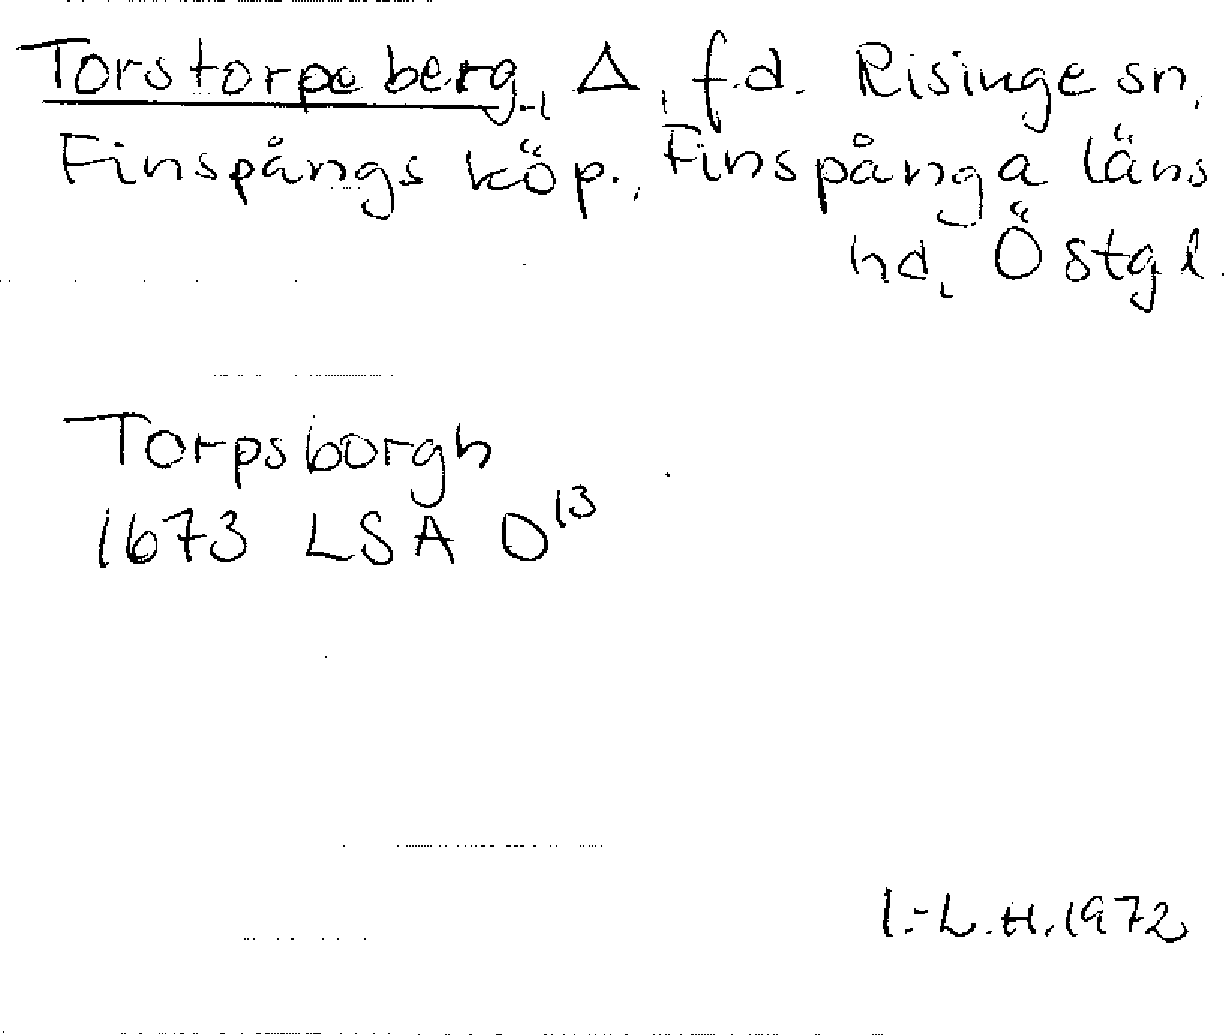 Torstorpeberg, Δ, f.d. Risinge sn,
Finspångs köp., Finspånga läns
hd, Östgl.
Torpsborgh
1673 LSA D¹³
I.-L.H. 1972